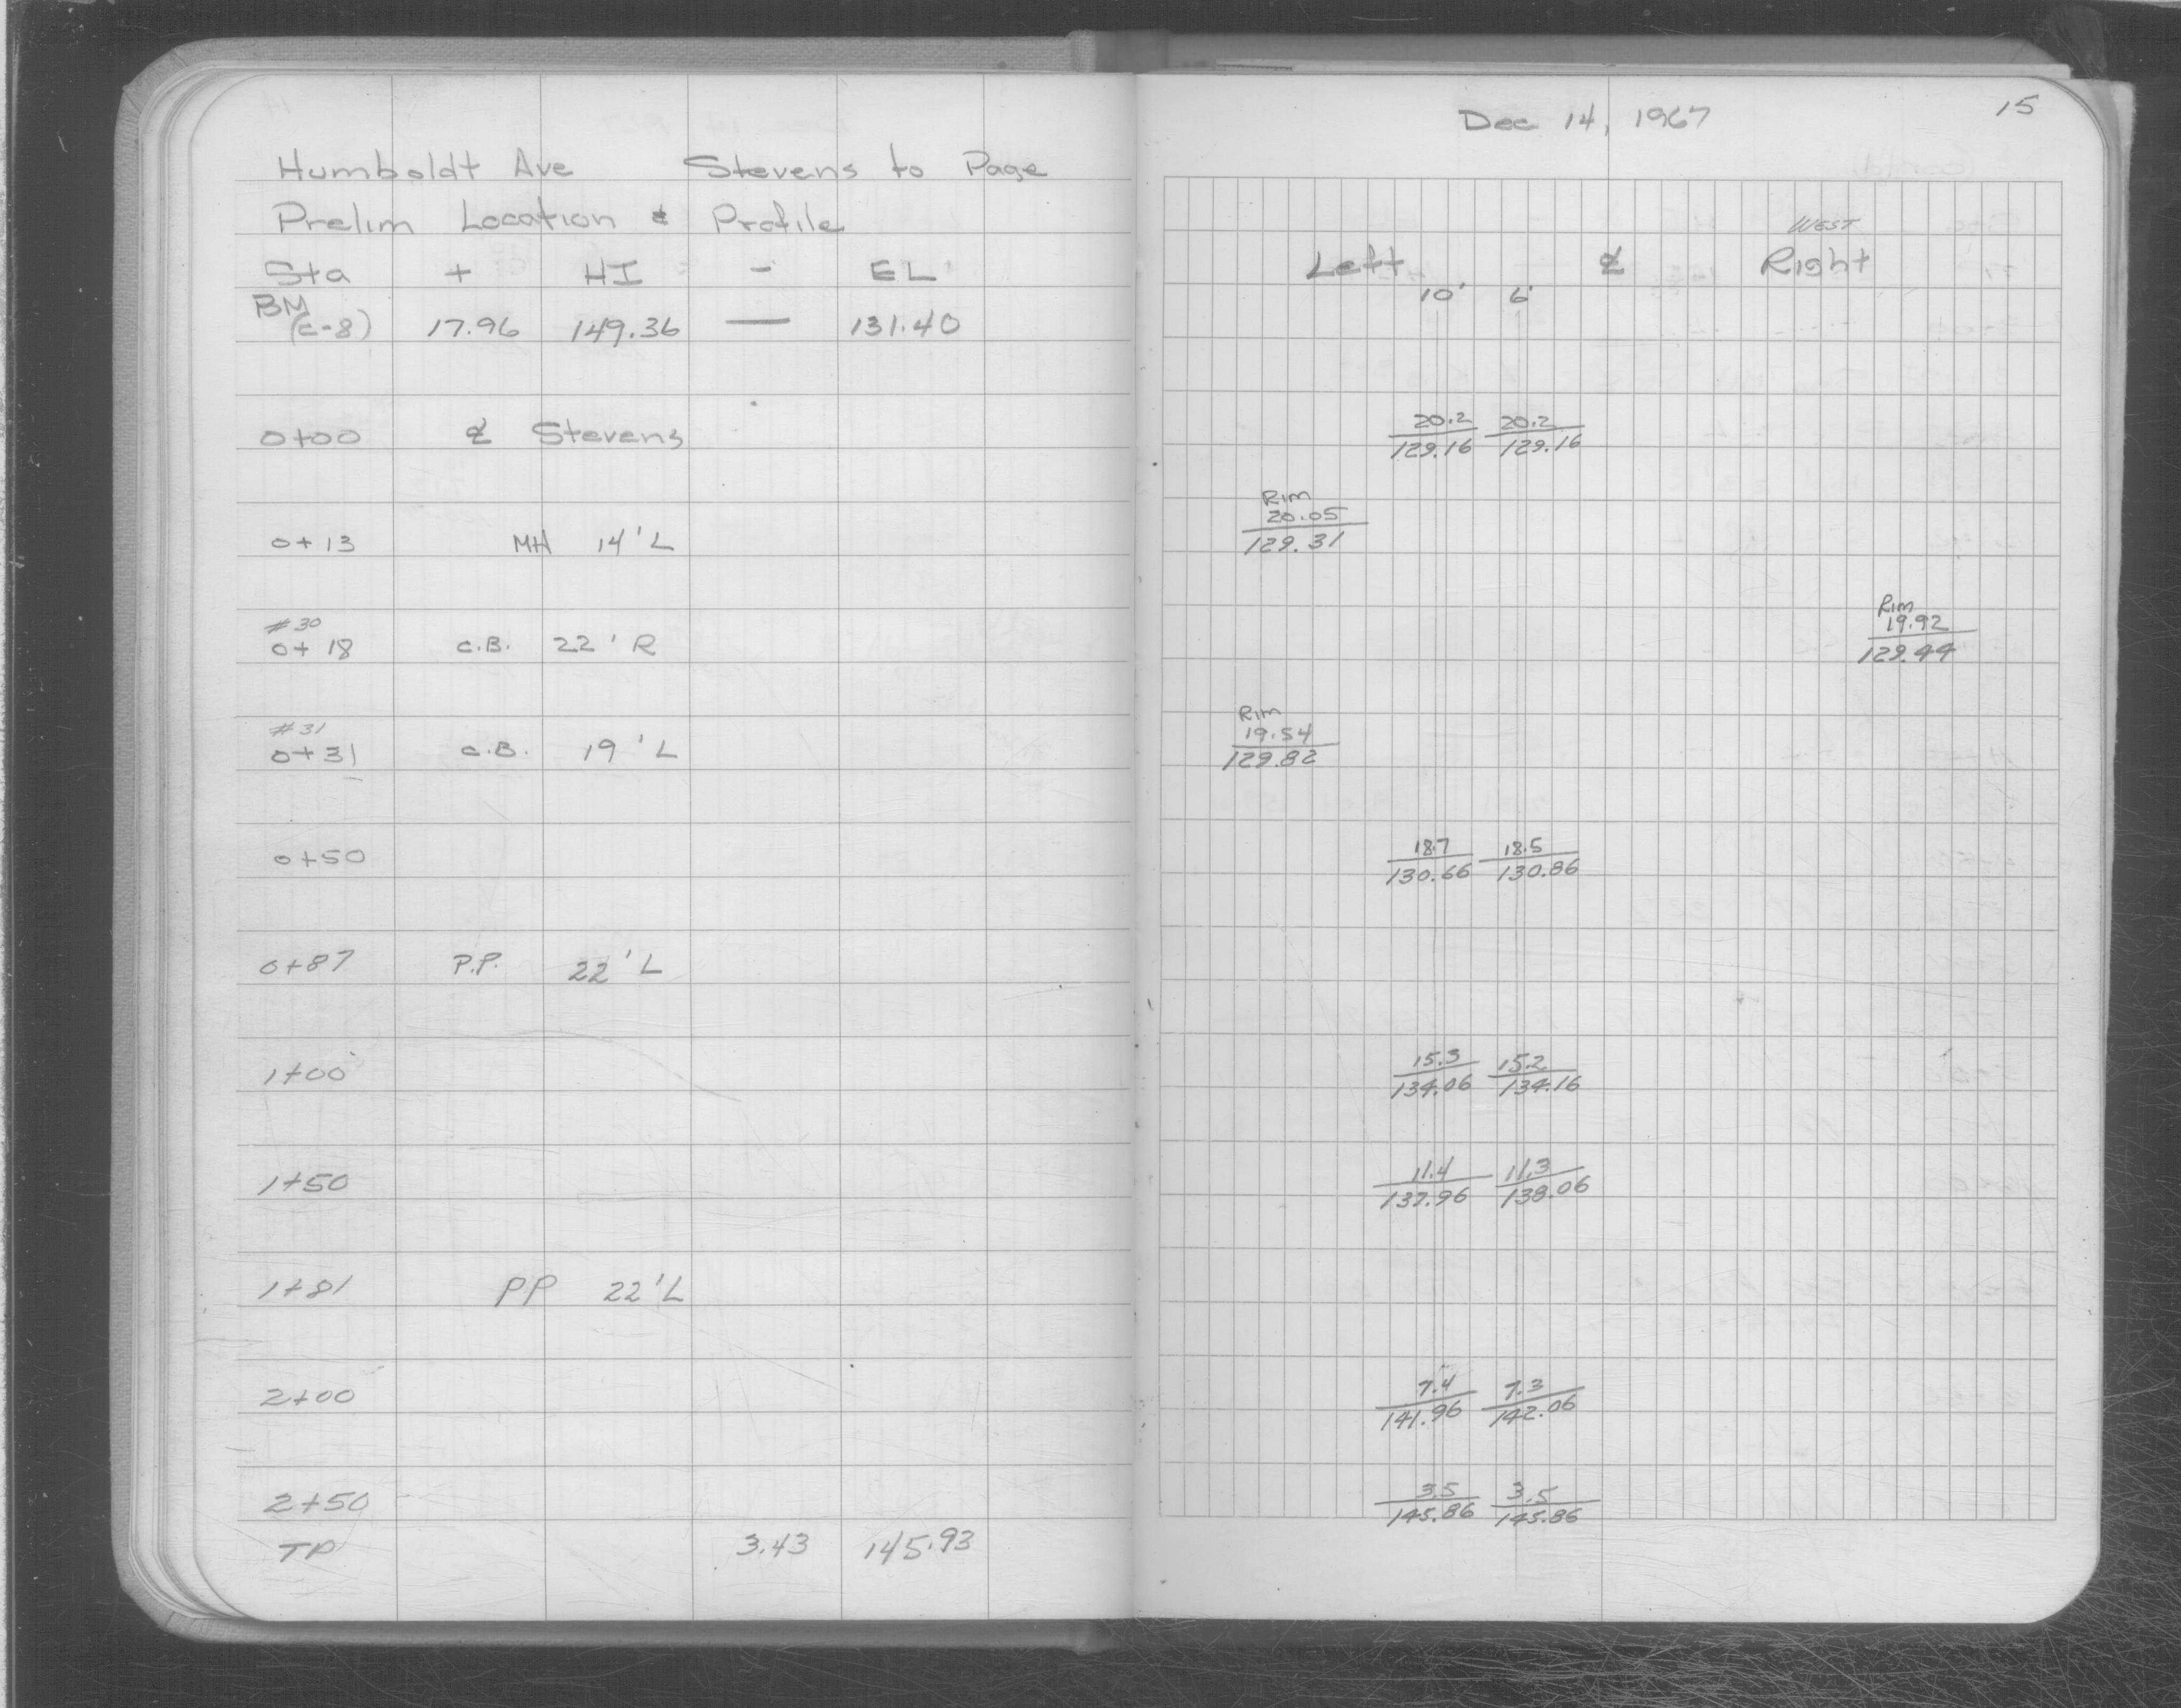 Humboldt Ave Stevens to Page
Prelim Location & Profile
Sta + HI - EL
BM
(c-8) 17.96 149.36 — 131.40
0+00 ℄ Stevens
0+13 MH 14'L
#30
0+18 C.B. 22'R
#31
0+31 C.B. 19'L
0+50
0+87 P.P. 22'L
1+00
1+50
1+81 PP 22'L
2+00
2+50
TP 3.43 145.93
Dec 14, 1967 15
WEST
Left ℄ Right
10' 6'
20.2 20.2
129.16 129.16
Rim
20.05
129.31
Rim
19.92
129.44
Rim
19.54
129.82
18.7 18.5
130.66 130.86
15.3 15.2
134.06 134.16
11.4 11.3
137.96 138.06
7.4 7.3
141.96 142.06
3.5 3.5
145.86 145.86